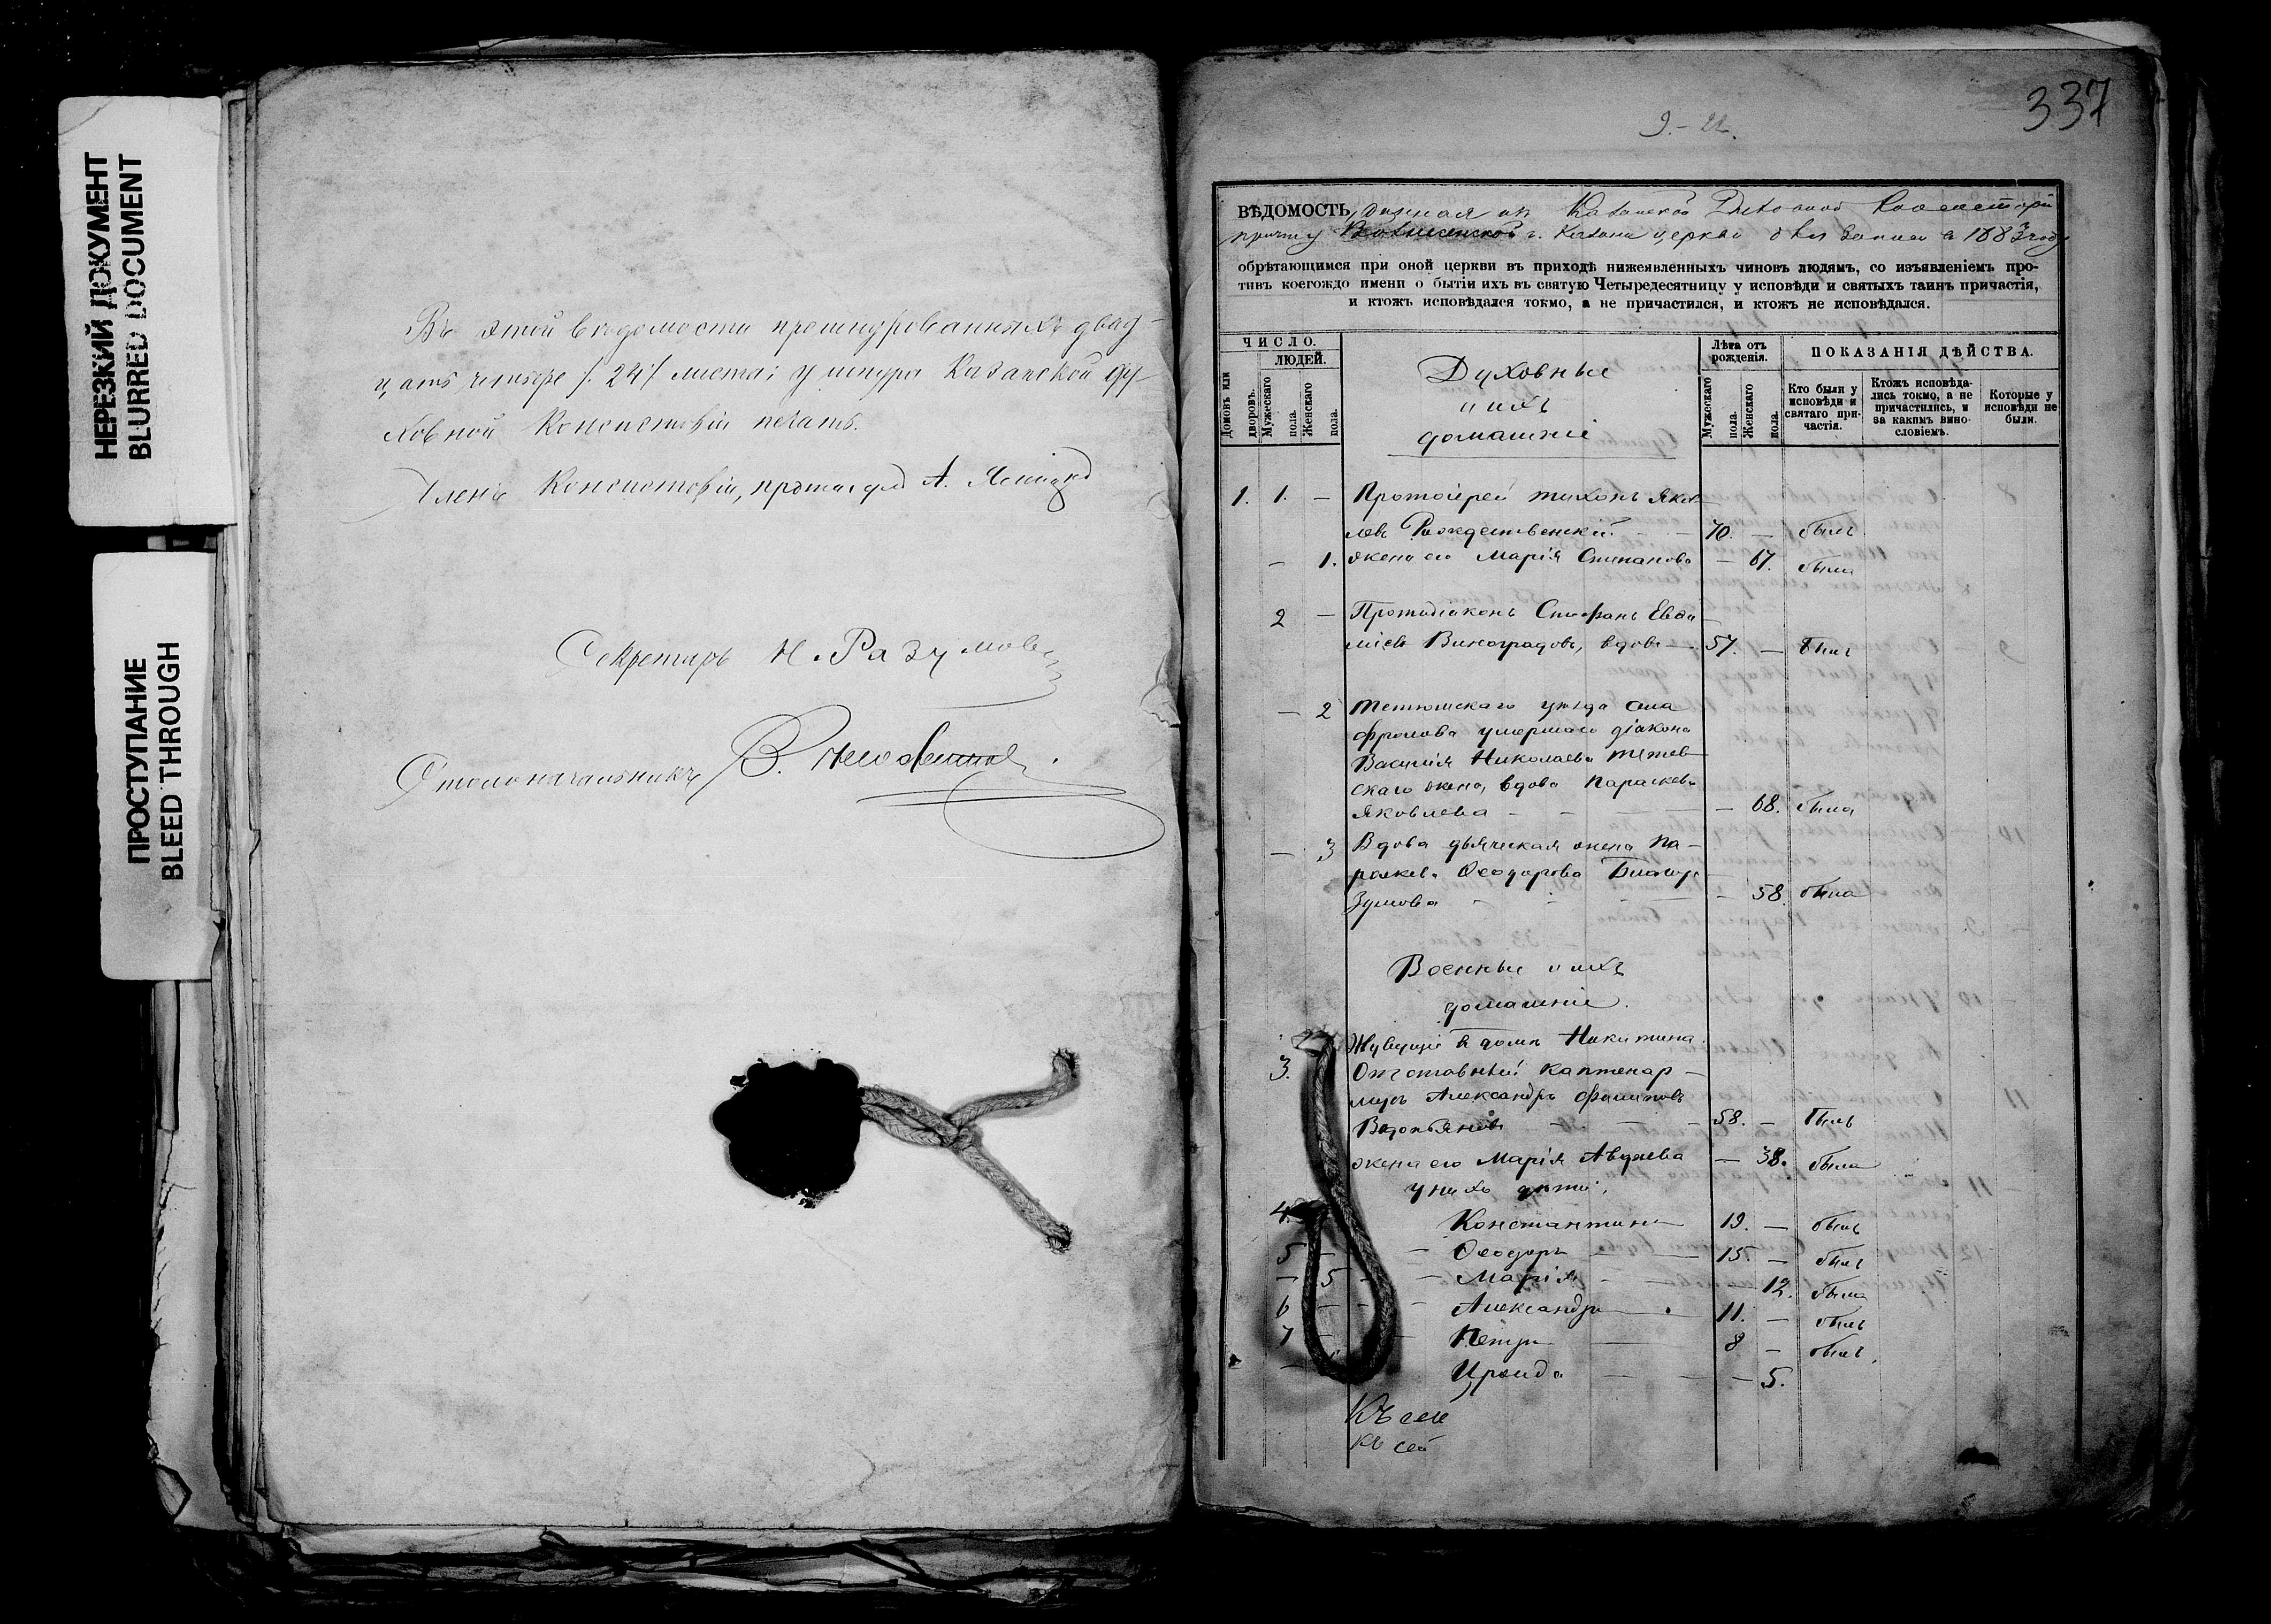 НЕРЕЗКИЙ ДОКУМЕНТ
BLURRED DOCUMENT
ПРОСТУПАНИЕ
BLEED THROUGH
Въ этой вѣдомости прошнурованныхъ двад-
цать четыре /. 24 / листа; у шнура Казанской Ду-
ховной Консисторіи печать.
Членъ Консисторіи, протоіерей А.
Секретарь Н. Разумов
Столоначальникъ В.
337
9.-22.
ВѢДОМОСТЬ, данная изъ Казанской Духовной Консисторіи
причту Вознесенской г. Казани церкви для записи в 1883 году
обрѣтающимся при оной церкви въ приходѣ нижеявленныхъ чиновъ людямъ, со изъявленіемъ про-
тивъ коегождо имени о бытіи ихъ въ святую Четыредесятницу у исповѣди и святыхъ таинъ причастія,
и ктожъ исповѣдался токмо, а не причастился, и ктожъ не исповѣдался.
ЧИСЛО.
ЛЮДЕЙ.
Домовъ или дворовъ.
Мужескаго пола.
Женскаго пола.
Духовные
и ихъ
домашніе
Лѣта отъ рожденія.
Мужескаго пола.
Женскаго пола.
ПОКАЗАНІЯ ДѢЙСТВА.
Кто были у исповѣди и святаго причастія.
Ктожъ исповѣдались токмо, а не причастились, и за какимъ винословіемъ.
Которые у исповѣди не были.
1. 1. — Протоіерей Тихонъ Яков
левъ Рождественскій — 70. — былъ
— 1. жена его Марія Степанова — 67. была
2 — Протодіаконъ Стефанъ Евѳи
міевъ Виноградовъ, вдовъ — 57. — былъ
— 2 Тетюшскаго уѣзда села
Фролова умершаго діакона
Василія Николаева
скаго жена, вдова Параскева
Яковлева — — 68. была
— 3 Вдова дьяческая жена Па-
раскева Ѳеодорова Благора
зумова — 58. была
Военные и ихъ
домашніе.
Живущіе в домѣ Никитина.
3. Отставный каптенар-
мусъ Александръ Филиповъ
Водопьяновъ — 58. — былъ
жена его Марія Авдѣева — 38. была
у нихъ дѣти,
4. Константинъ — 19. — былъ
5 — — Ѳеодоръ — 15. — былъ
— 5 — Марія — 12. была
6 — — Александръ — 11. — былъ
7 — — Петръ — 8 — былъ.
— Ираида — — 5.
Къ сей
къ сей